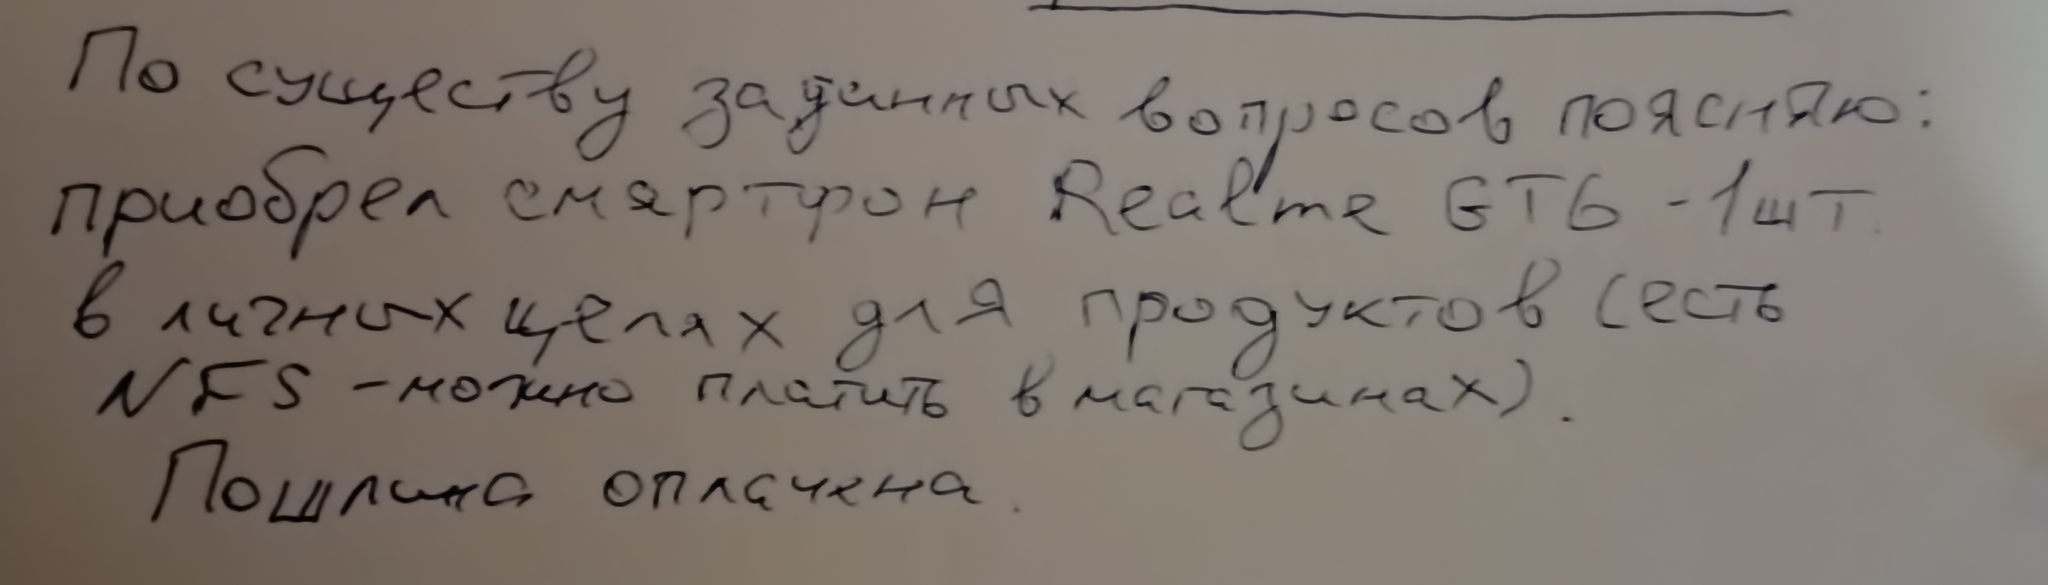 По существу заданных вопросов поясняю:
приобрел смартфон Realme GT6 - 1шт.
в личных целях для продуктов (есть
NFS - можно платить в магазинах).
Пошлина оплачена.